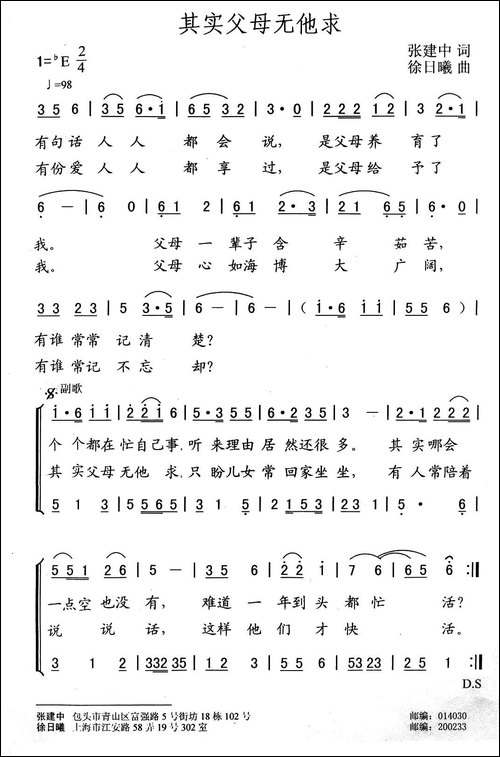 其实父母无他求
1=♭E 2/4
张建中 词
♩=98
徐日曦 曲
3 5 6 | 3 5 6·i | 6 5 3 5 | 3·0 | 2 2 2 1 2 | 3 2·1 |
有句话 人人 都会 说, 是父母养 育了
有份爱 人人 都享 过, 是父母给 予了
6 — | 6 0 | 6 1 2 | 6 1 2·3 | 2 1 6 5 | 6 0 |
我。 父母一 辈子含 辛 茹苦,
我。 父母心 如海博 大 广阔,
3 3 2 3 | 5 3·5 | 6 — | 6 — | ( i·6 i i | 5 5 6 ) |
有谁常常 记清 楚?
有谁常记 不忘 却?
副歌
i·6 i i | 2 2 i 6 | 5·3 5 5 | 5·3 5 6 | 3 — | 2·1 2 2 2 |
个个都在忙自己事,听来理由居然还很多。 其实哪会
其实父母无他求,只盼儿女常回家坐坐, 有人常陪着
5 1 3 | 5 5 6 5 | 3 1 2 3 | 1 2 3 | 1 5 | 5· 6 |
5 5 1 2 6 | 5 — | 3 5 6 i | 2 2 i | 7 6 6 5 | 6 — :|
一点空也没有, 难道一年到头都忙 活?
说说话, 这样他们才快 活。
3 1 2 | 1 3 | 3 3 2 3 5 | 1 2 3 | 5 1 2 | 3 — :|
D.S
张建中 包头市青山区富强路 5 号街坊 18 栋 102 号 邮编: 014030
徐日曦 上海市江安路 58 弄 19 号 302 室 邮编: 200233